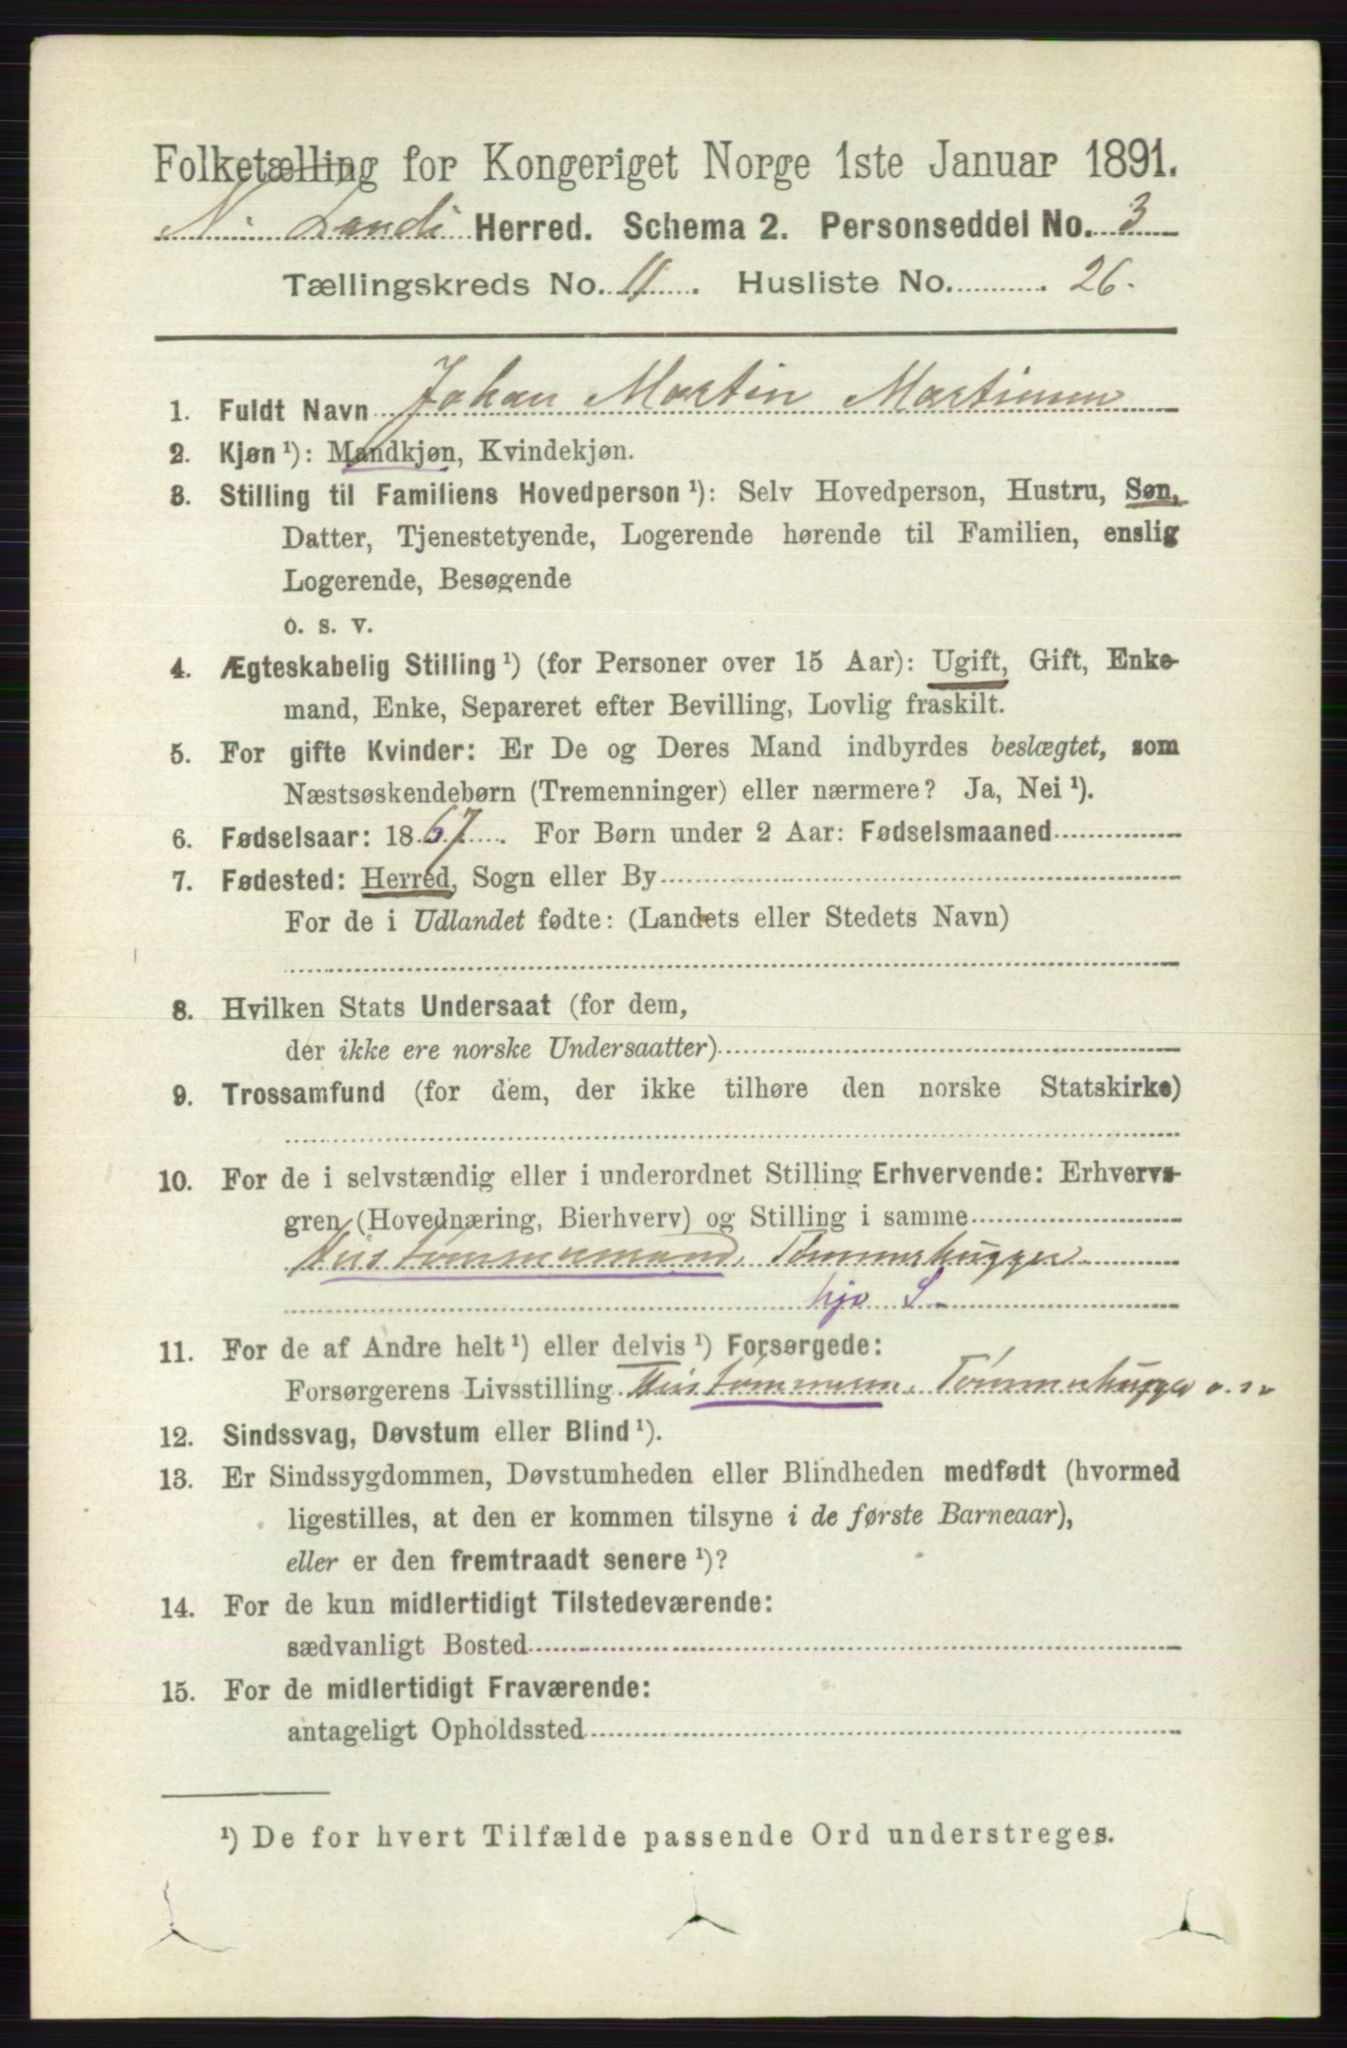 Folketælling for Kongeriget Norge 1ste Januar 1891.
N. Lands Herred. Schema 2. Personseddel No. 3
Tællingskreds No. 11. Husliste No. 26.
1. Fuldt Navn Johan Martin Martinsen
2. Kjøn¹): Mandkjøn, Kvindekjøn.
3. Stilling til Familiens Hovedperson¹): Selv Hovedperson, Hustru, Søn,
Datter, Tjenestetyende, Logerende hørende til Familien, enslig
Logerende, Besøgende
o. s. v.
4. Ægteskabelig Stilling¹) (for Personer over 15 Aar): Ugift, Gift, Enke-
mand, Enke, Separeret efter Bevilling, Lovlig fraskilt.
5. For gifte Kvinder: Er De og Deres Mand indbyrdes beslægtet, som
Næstsøskendebørn (Tremenninger) eller nærmere? Ja, Nei¹).
6. Fødselsaar: 1867. For Børn under 2 Aar: Fødselsmaaned
7. Fødested: Herred, Sogn eller By
For de i Udlandet fødte: (Landets eller Stedets Navn)
8. Hvilken Stats Undersaat (for dem,
der ikke ere norske Undersaatter)
9. Trossamfund (for dem, der ikke tilhøre den norske Statskirke)
10. For de i selvstændig eller i underordnet Stilling Erhvervende: Erhvervs-
gren (Hovednæring, Bierhverv) og Stilling i samme
Hustømmermand, Tømmerhugger
hjo S
11. For de af Andre helt¹) eller delvis¹) Forsørgede:
Forsørgerens Livsstilling Hustømmerm. Tømmerhugger o. s. v
12. Sindssvag, Døvstum eller Blind¹).
13. Er Sindssygdommen, Døvstumheden eller Blindheden medfødt (hvormed
ligestilles, at den er kommen tilsyne i de første Barneaar),
eller er den fremtraadt senere¹)?
14. For de kun midlertidigt Tilstedeværende:
sædvanligt Bosted
15. For de midlertidigt Fraværende:
antageligt Opholdssted
¹) De for hvert Tilfælde passende Ord understreges.